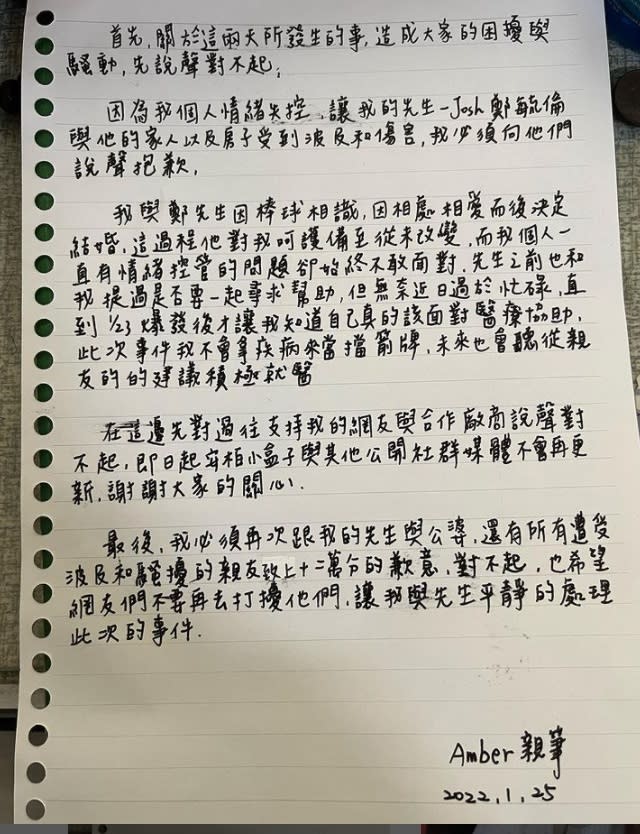 首先,關於這兩天所發生的事,造成大家的困擾與
騷動,先說聲對不起,
因為我個人情緒失控,讓我的先生-Josh鄭毓倫
與他的家人以及房子受到波及和傷害,我必須向他們
說聲抱歉,
我與鄭先生因棒球相識,因相處相愛而後決定
結婚,這過程他對我呵護備至從未改變,而我個人一
直有情緒控管的問題卻始終不敢面對,先生之前也和
我提過是否要一起尋求幫助,但無奈近日過於忙碌,直
到1/23爆發後才讓我知道自己真的該面對醫療協助,
此次事件我不會拿疾病來當擋箭牌,未來也會聽從親
友的的建議積極就醫
在這邊先對過往支持我的網友與合作廠商說聲對
不起,即日起安柏小盒子與其他公開社群媒體不會再更
新,謝謝大家的關心.
最後,我必須再次跟我的先生與公婆,還有所有遭受
波及和騷擾的親友致上十二萬分的歉意,對不起,也希望
網友們不要再去打擾他們,讓我與先生平靜的處理
此次的事件.
Amber 親筆
2022,1,25